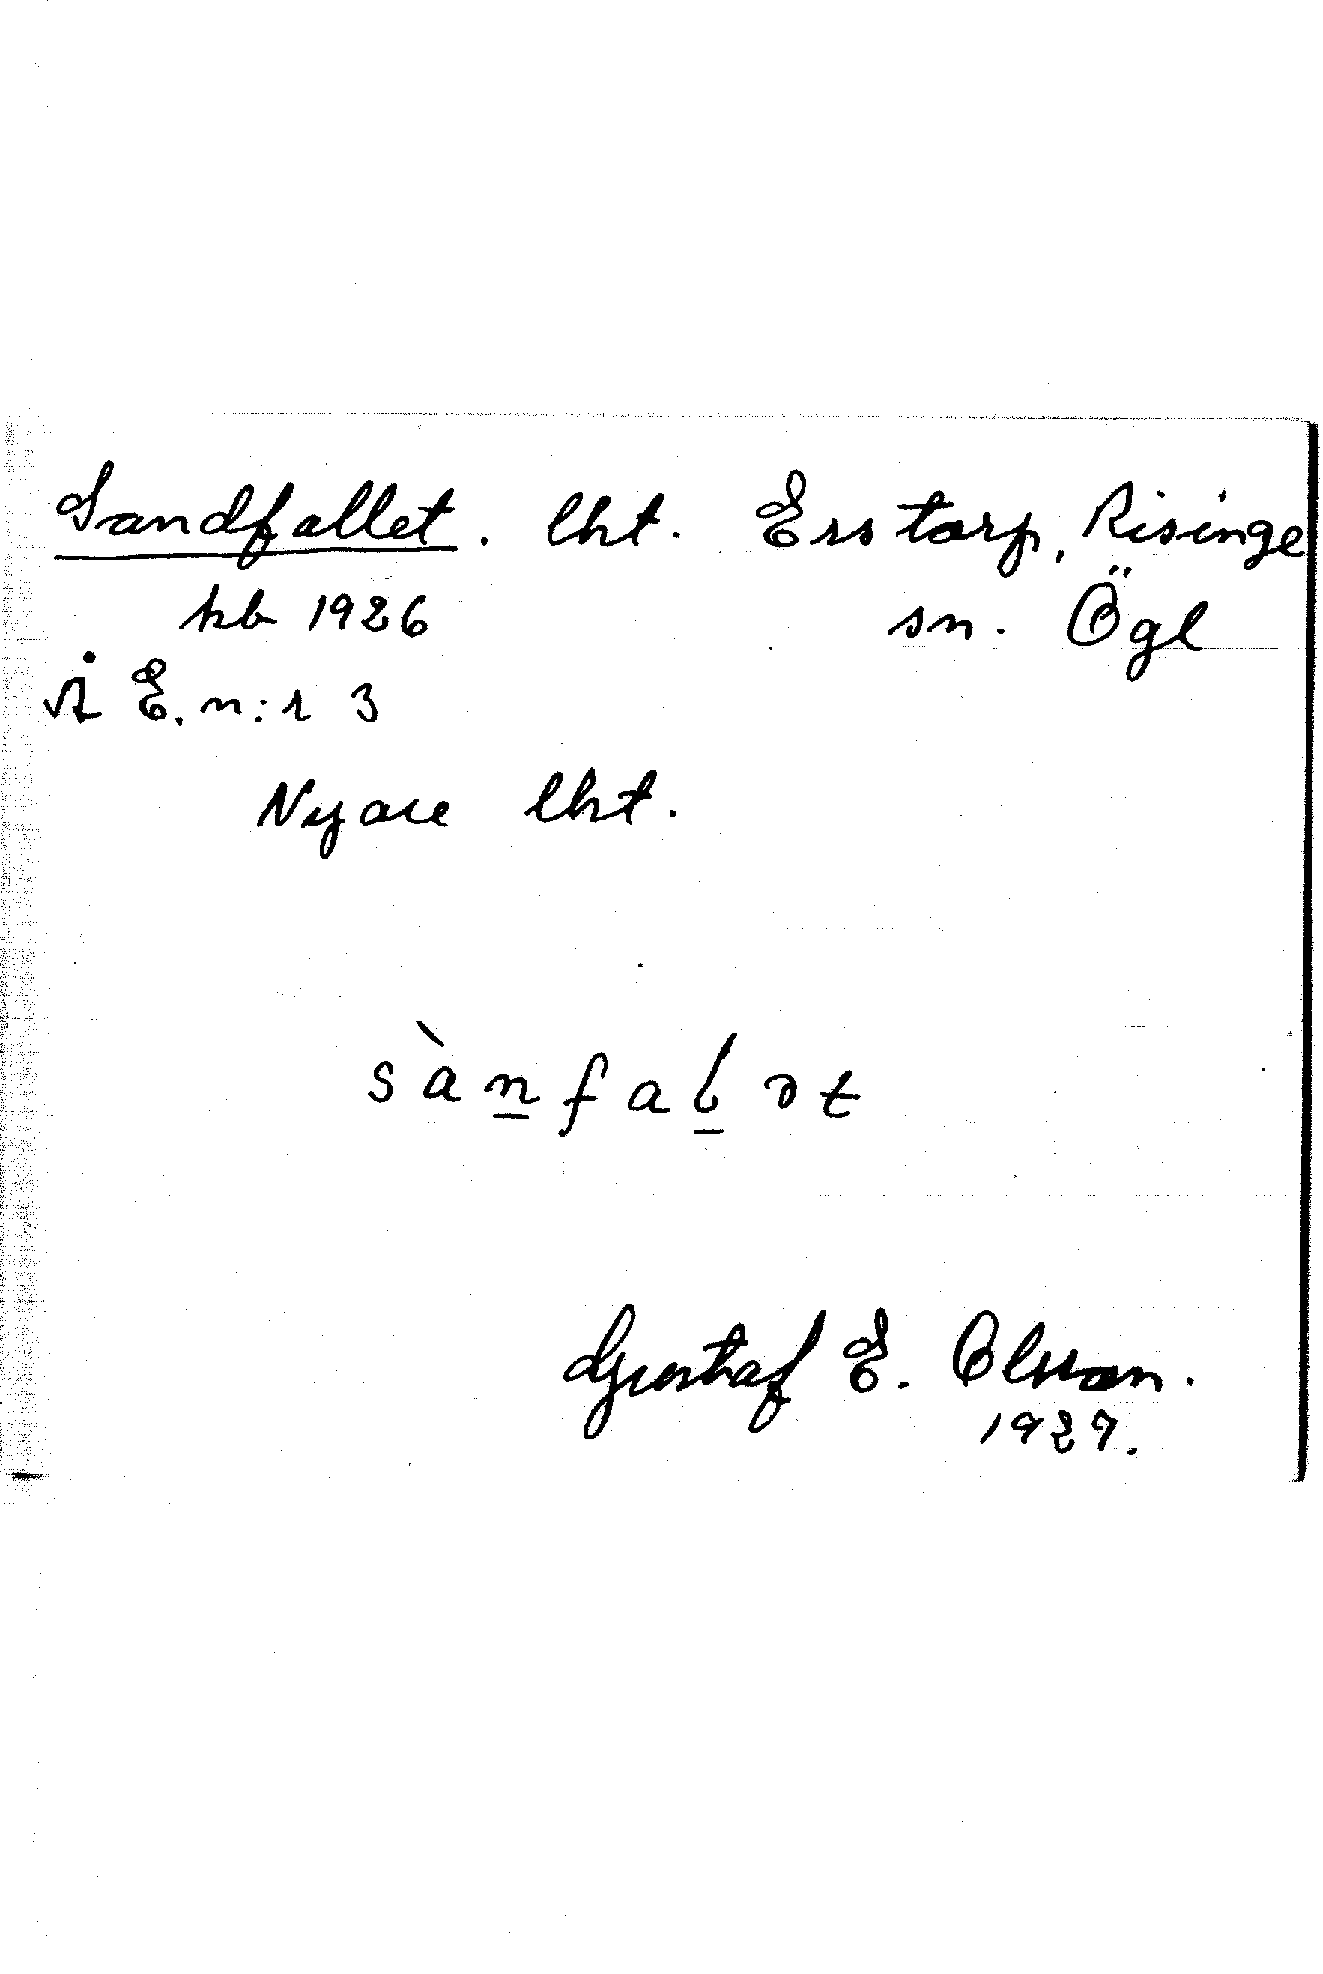 Sandfallet. lht. Erstorp, Risinge
kb 1926 sn. Ögl
Å E. n:r 3
Nyare lht.
sànfalət
Gustaf E. Olsson.
1927.